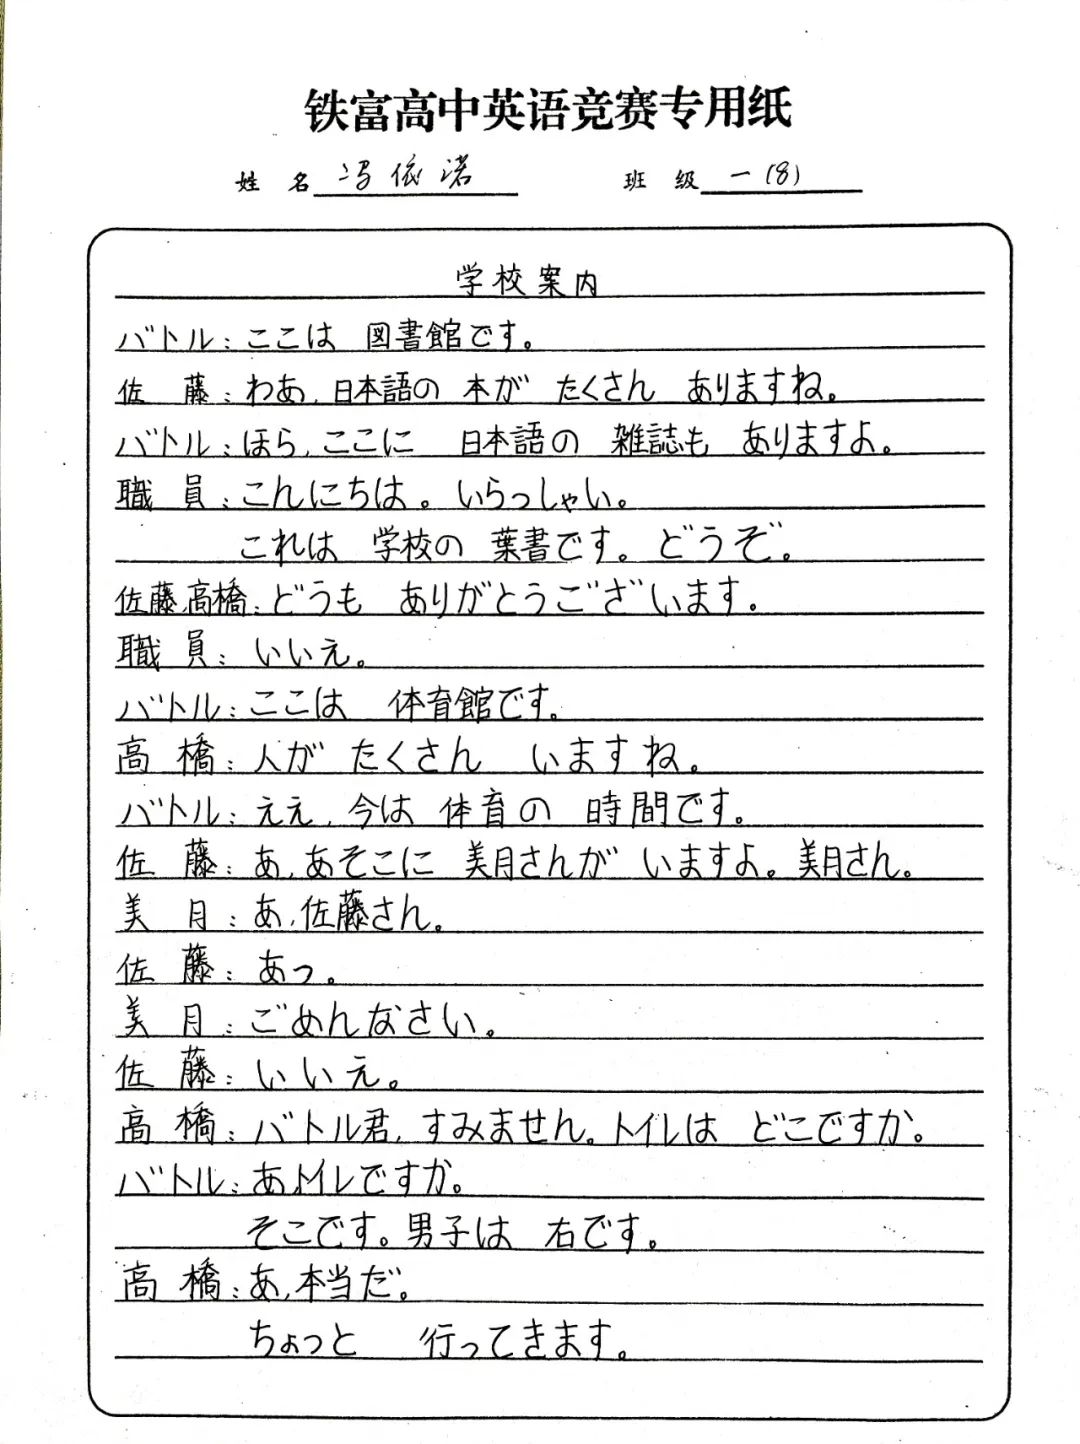 铁富高中英语竞赛专用纸
姓 名 冯依诺 班 级 一(8)
学校案内
バトル:ここは 図書館です。
佐 藤:わあ、日本語の 本が たくさん ありますね。
バトル:ほら、ここに 日本語の 雑誌も ありますよ。
職 員:こんにちは。いらっしゃい。
これは 学校の 葉書です。どうぞ。
佐藤、高橋:どうも ありがとうございます。
職 員:いいえ。
バトル:ここは 体育館です。
高 橋:人が たくさん いますね。
バトル:ええ、今は 体育の 時間です。
佐 藤:あ、あそこに 美月さんが いますよ。美月さん。
美 月:あ、佐藤さん。
佐 藤:あっ。
美 月:ごめんなさい。
佐 藤:いいえ。
高 橋:バトル君、すみません。トイレは どこですか。
バトル:あ、トイレですか。
そこです。男子は 右です。
高 橋:あ、本当だ。
ちょっと 行ってきます。